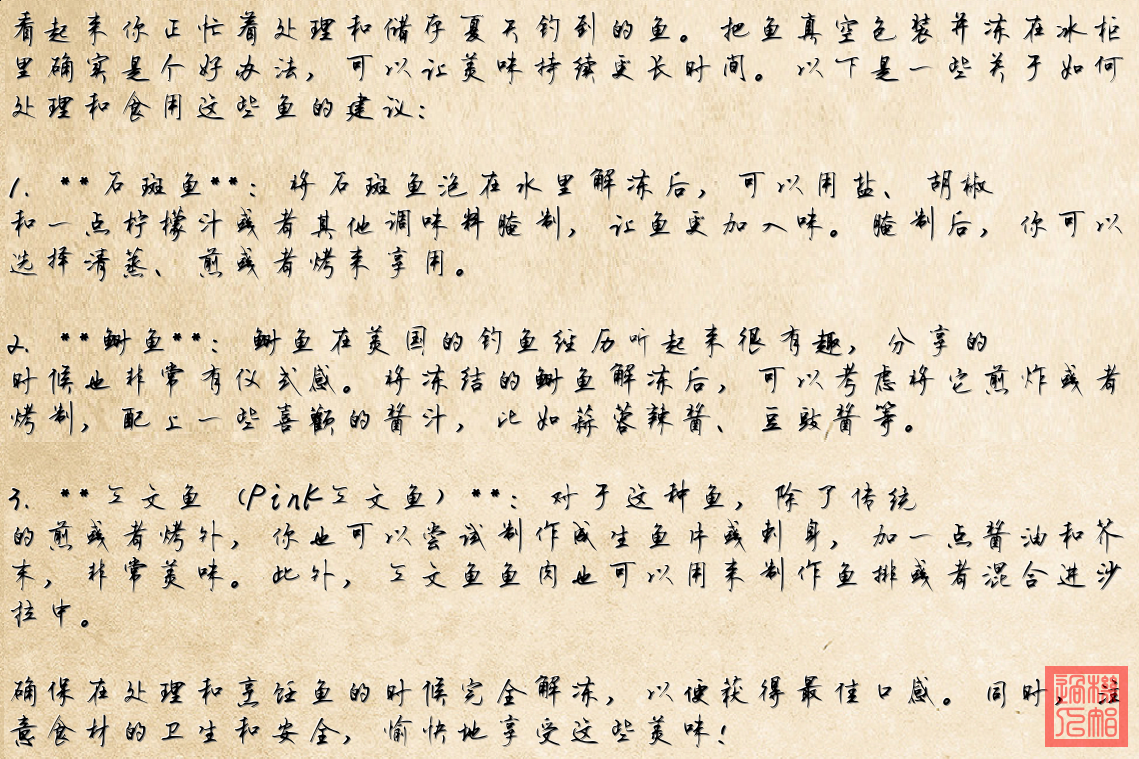 看起来你正忙着处理和储存夏天钓到的鱼。把鱼真空包装并冻在冰柜
里确实是个好办法，可以让美味持续更长时间。以下是一些关于如何
处理和食用这些鱼的建议：
1. **石斑鱼**：将石斑鱼泡在水里解冻后，可以用盐、胡椒
和一点柠檬汁或者其他调味料腌制，让鱼更加入味。腌制后，你可以
选择清蒸、煎或者烤来享用。
2. **鲥鱼**：鲥鱼在美国的钓鱼经历听起来很有趣，分享的
时候也非常有仪式感。将冻结的鲥鱼解冻后，可以考虑将它煎炸或者
烤制，配上一些喜欢的酱汁，比如蒜蓉辣酱、豆豉酱等。
3. **三文鱼（Pink三文鱼）**：对于这种鱼，除了传统
的煎或者烤外，你也可以尝试制作成生鱼片或刺身，加一点酱油和芥
末，非常美味。此外，三文鱼鱼肉也可以用来制作鱼排或者混合进沙
拉中。
确保在处理和烹饪鱼的时候完全解冻，以便获得最佳口感。同时，注
意食材的卫生和安全，愉快地享受这些美味！